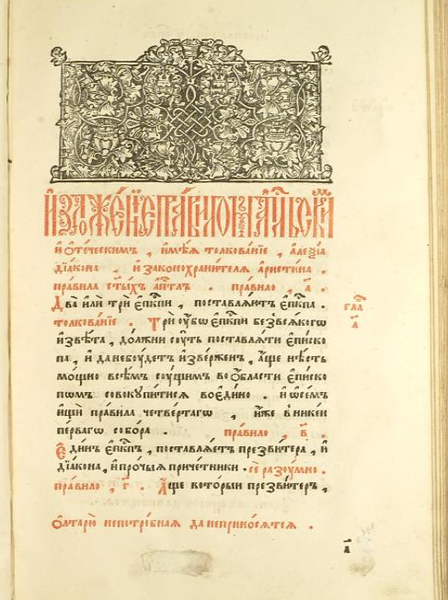 И҆зложе́нїе пра́вилом а҆пⷭ҇льски́мъ
и҆ ѻ҆те́ческимъ , и҆мѣ́ѧ толкова́нїе , а҆леѯі́ѧ
дїа́кона , и҆ законохрани́телѧ а҆ри́стина .
пра́вила ст҃ы́хъ а҆пⷭ҇тлъ . пра́вило , а҃ .
Два̀ и҆лѝ трѝ є҆пⷭ҇кпи , поставлѧ́ютъ є҆пⷭ҇кпа .
толкова́нїе . Трѝ ᲂу҆́бѡ є҆пⷭ҇кпи без̾всѧ́когѡ
и҆звѣ́та , до́лжни сꙋ́ть поставлѧ́ти є҆пи́ско
па , и҆ да небꙋ́детъ и҆зве́ржен , а҆́ще нѣ́сть
мо́щно всѣ́м сꙋ́щим во ѻ҆́бласти є҆пи́ско
пѡм совокꙋпи́тисѧ воеди́но . и҆ ѡ҆ се́м
и҆щѝ пра́вила четве́ртагѡ , и҆́же в никеи
пе́рвагѡ собо́ра . пра́вило , в҃ .
Є҆ди́нъ є҆пⷭ҇кпъ , поставлѧ́етъ презви́тера , и҆
дїа́кона , и҆ про́чыѧ приче́тники . сѐ разꙋ́мно .
пра́вило , г҃ . А҆́ще кото́рыи презви́теръ ,
ѻ҆лтарю̀ непотре́бнаѧ да неприно́сѧтсѧ .
гла
а҃
а҃